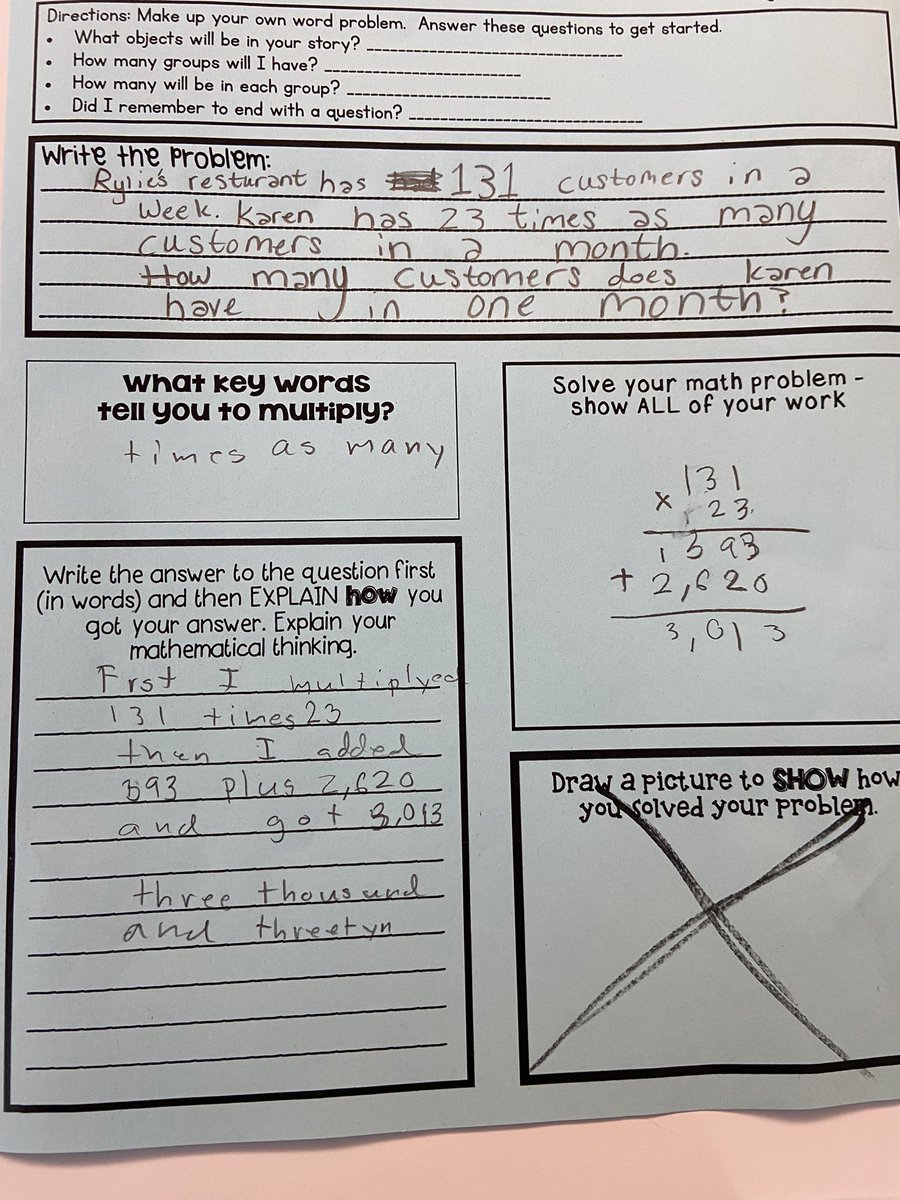 Directions: Make up your own word problem. Answer these questions to get started.
• What objects will be in your story? ______
• How many groups will I have? ______
• How many will be in each group? ______
• Did I remember to end with a question? ______
Write the Problem:
Rylie's resturant has 131 customers in a
Week. Karen has 23 times as many
customers in a month.
How many customers does karen
have in one month?
What key words
tell you to multiply?
times as many
Solve your math problem -
show ALL of your work
131
x 23
1 393
+ 2,620
3,013
Write the answer to the question first
(in words) and then EXPLAIN how you
got your answer. Explain your
mathematical thinking.
Frst I multiplyed
131 times 23
then I added
393 plus 2,620
and got 3,013
three thousand
and threetyn
Draw a picture to SHOW how
you solved your problem.